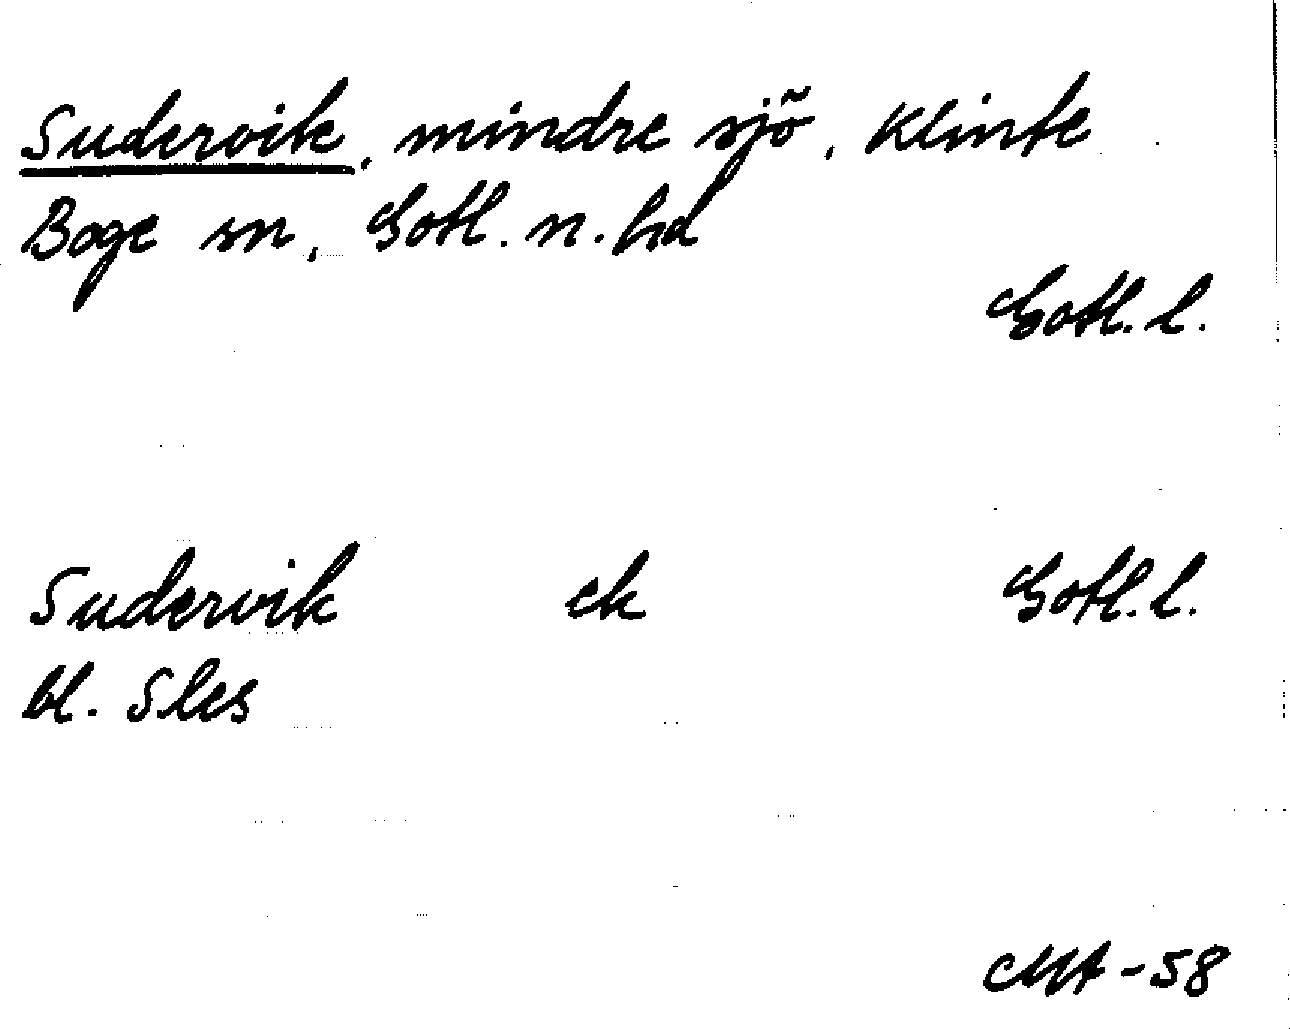 Sudervik, mindre sjö, Klinte
Boge sn, Gotl. n. hd
Gotl. l.
Sudervik ek Gotl. l.
bl. Sles
MA-58